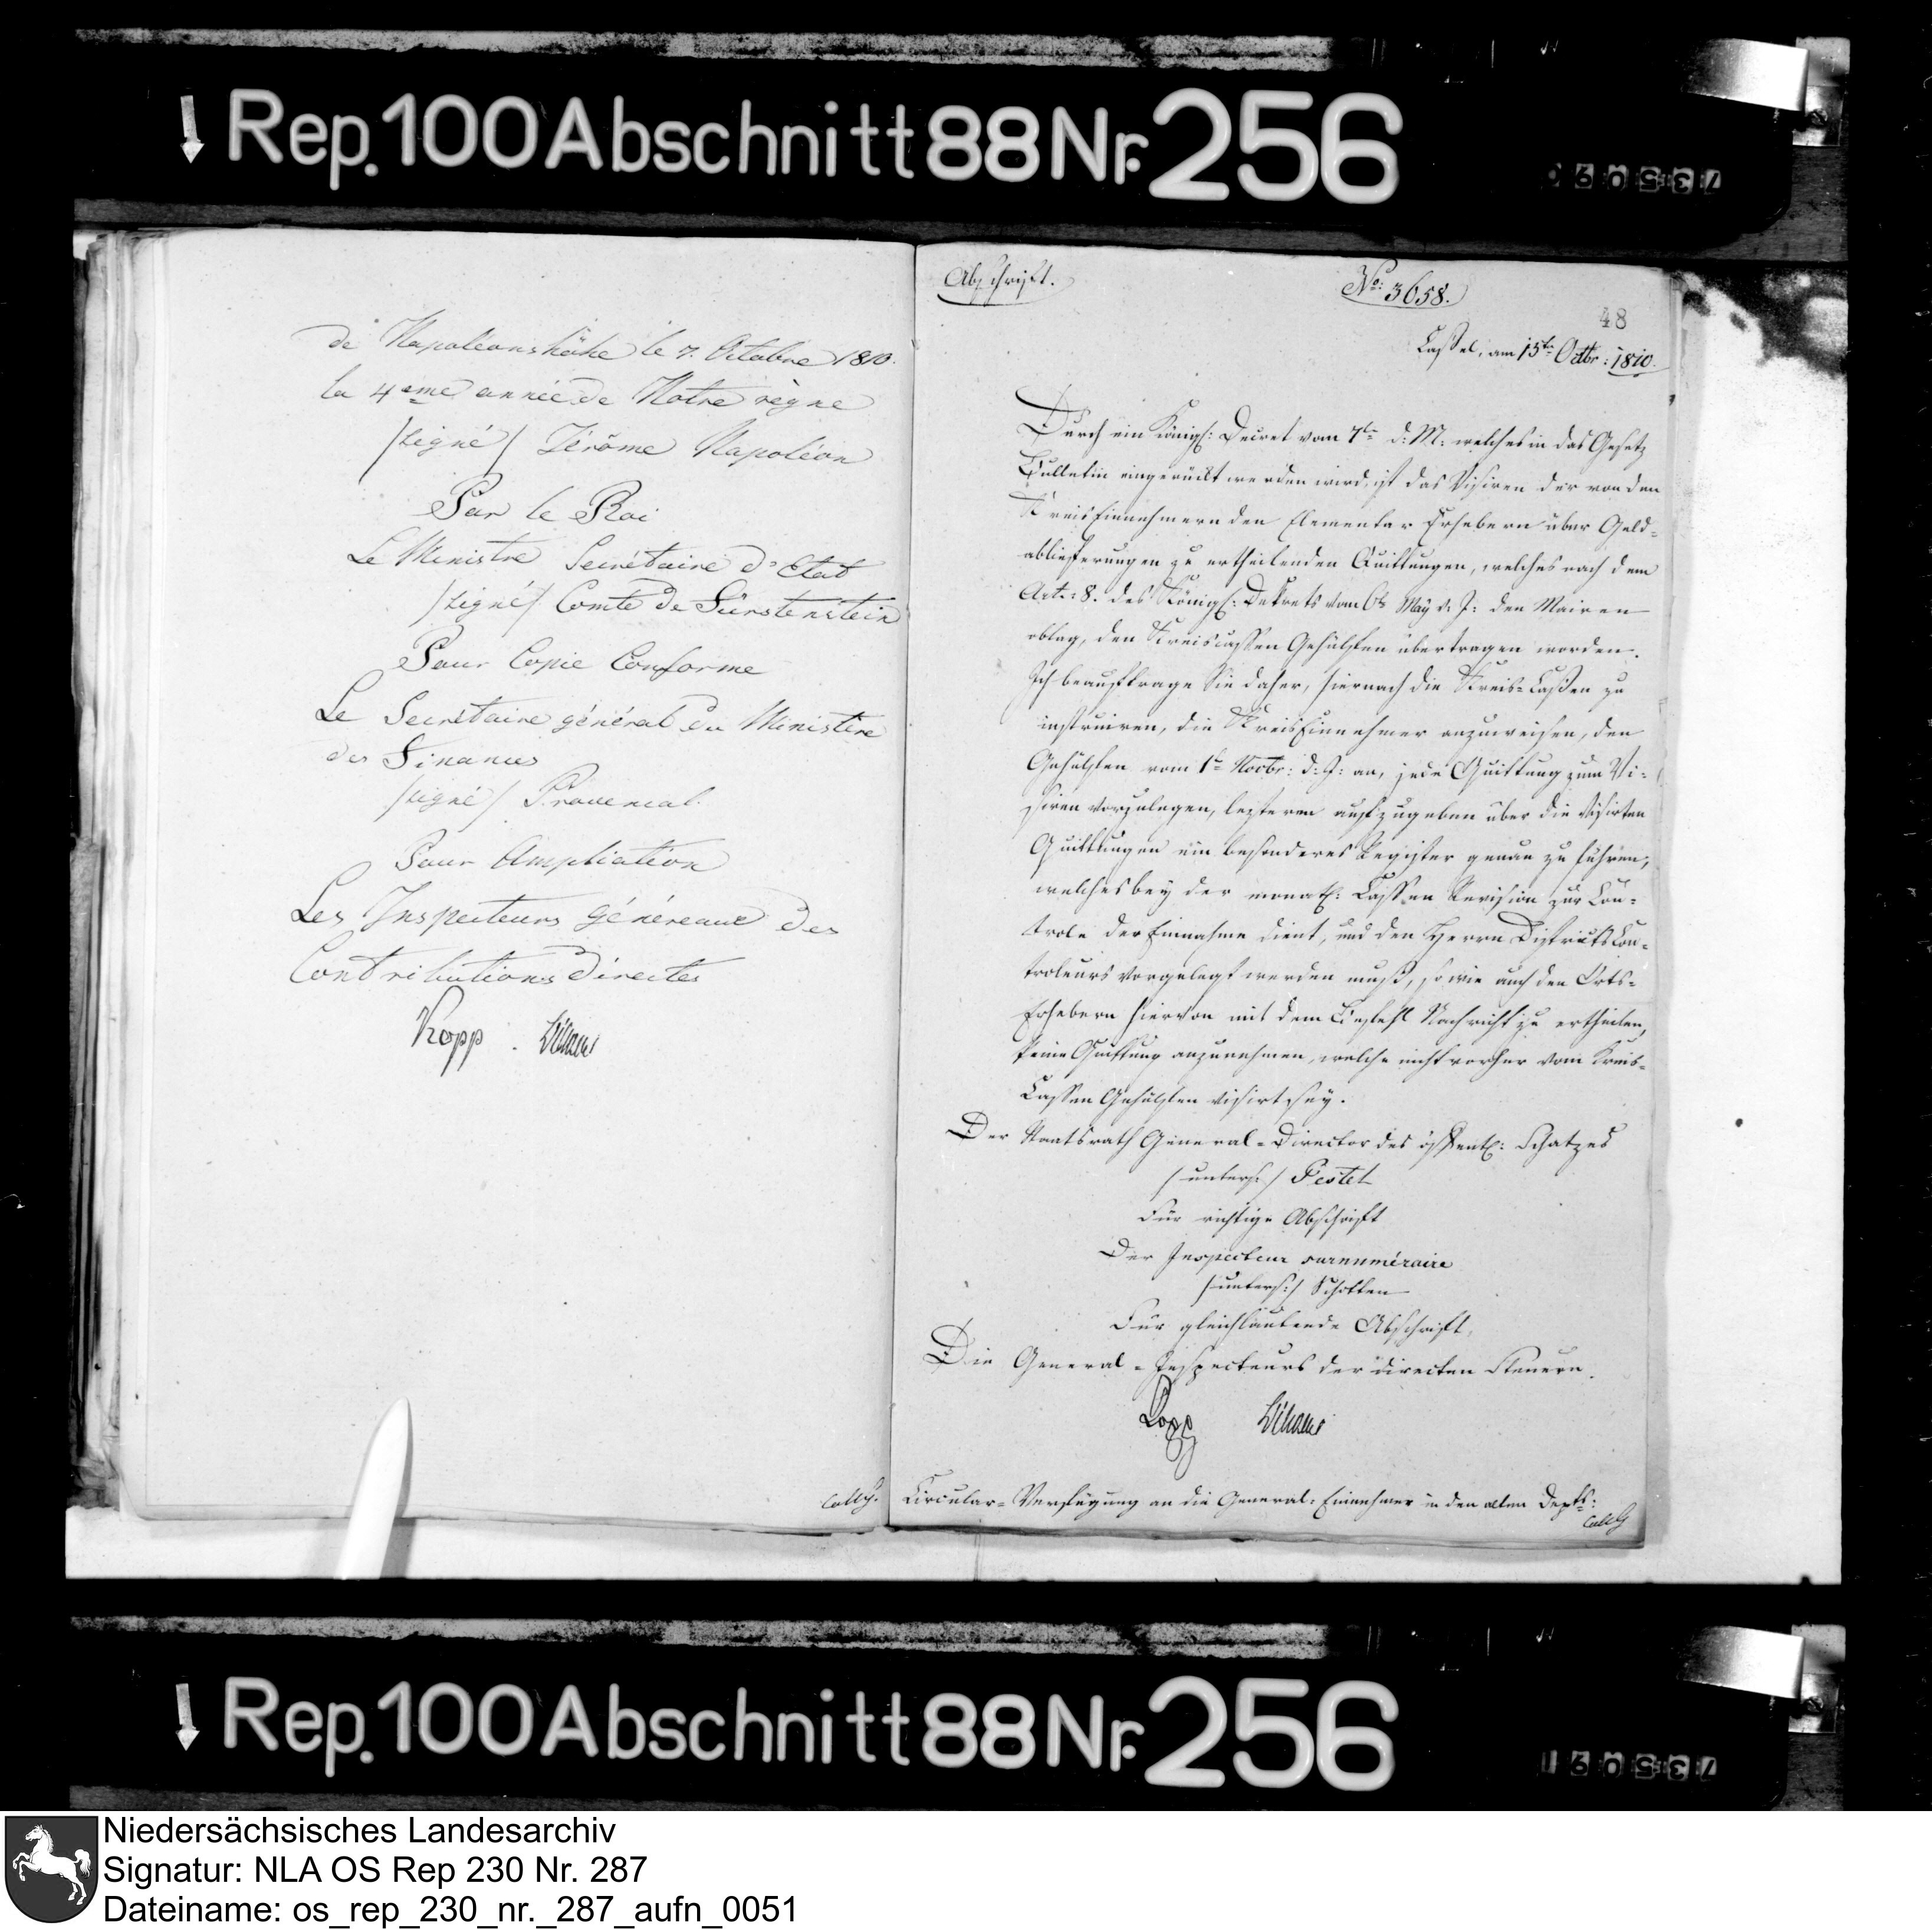 Rep. 100 Abschnitt 88 Nr. 256
de Napoléonshöhe le 7. Octobre 1810.
la 4eme année de Notre règne
/signé/ Jérôme Napoléon
Par le Roi
Le Ministre Secrétaire d'Etat
/signé/ Comte de Fürstenstein
Pour Copie Conforme
Le Secrétaire général du Ministère
des Finances
/signé/ Provencal.
Pour Ampliation
Les Inspecteurs généreaux des
Contributions directes
Kopp.
Abschrift.
No: 3658.
48
Cassel, am 15ten Octbr: 1810.
Durch ein Königl: Decret vom 7ten d: M: welches in das Gesetz
Bulletin eingerückt werden wird, ist das Visiren der von den
Kreis Einnehmern den Elementar Erhebern über Geld-
ablieferungen zu ertheilenden Quittungen, welches nach dem
Art: 8. des Königl: Dekrets vom 6ten May d: J: den Mairen
oblag, den Kreiscassen Gehülfen übertragen worden.
Ich beauftrage Sie daher, hiernach die Kreis-Cassen zu
instruiren, die Kreis Einnehmer anzuweisen, den
Gehülfen vom 1ten Novbr: d: J: an, jede Quittung zum Vi-
siren vorzulegen, lezteren aufzugeben über die visirten
Quittungen ein besonderes Register genau zu führen,
welches bey der monatl: Cassen Revision zur Con-
trole der Einnahme dient, und den Herrn Districts Con-
troleurs vorgelegt werden muß, so wie auch den Orts-
Erhebern hiervon mit dem Befehl Nachricht zu ertheilen,
keine Quittung anzunehmen, welche nicht vorher vom Kreis-
Cassen Gehülfen visirt sey.
Der Staatsrath General-Director des öffentl: Schatzes
/unters:/ Pestel
Für richtige Abschrift
Der Inspecteur surnuméraire
/unters:/ Scholten
Für gleichlautende Abschrift,
Die General-Inspecteurs der directen Steuern.
Kopp
Circular-Verfügung an die General-Einnehmer in den alten Depts:
Rep. 100 Abschnitt 88 Nr. 256
Niedersächsisches Landesarchiv
Signatur: NLA OS Rep 230 Nr. 287
Dateiname: os_rep_230_nr._287_aufn_0051